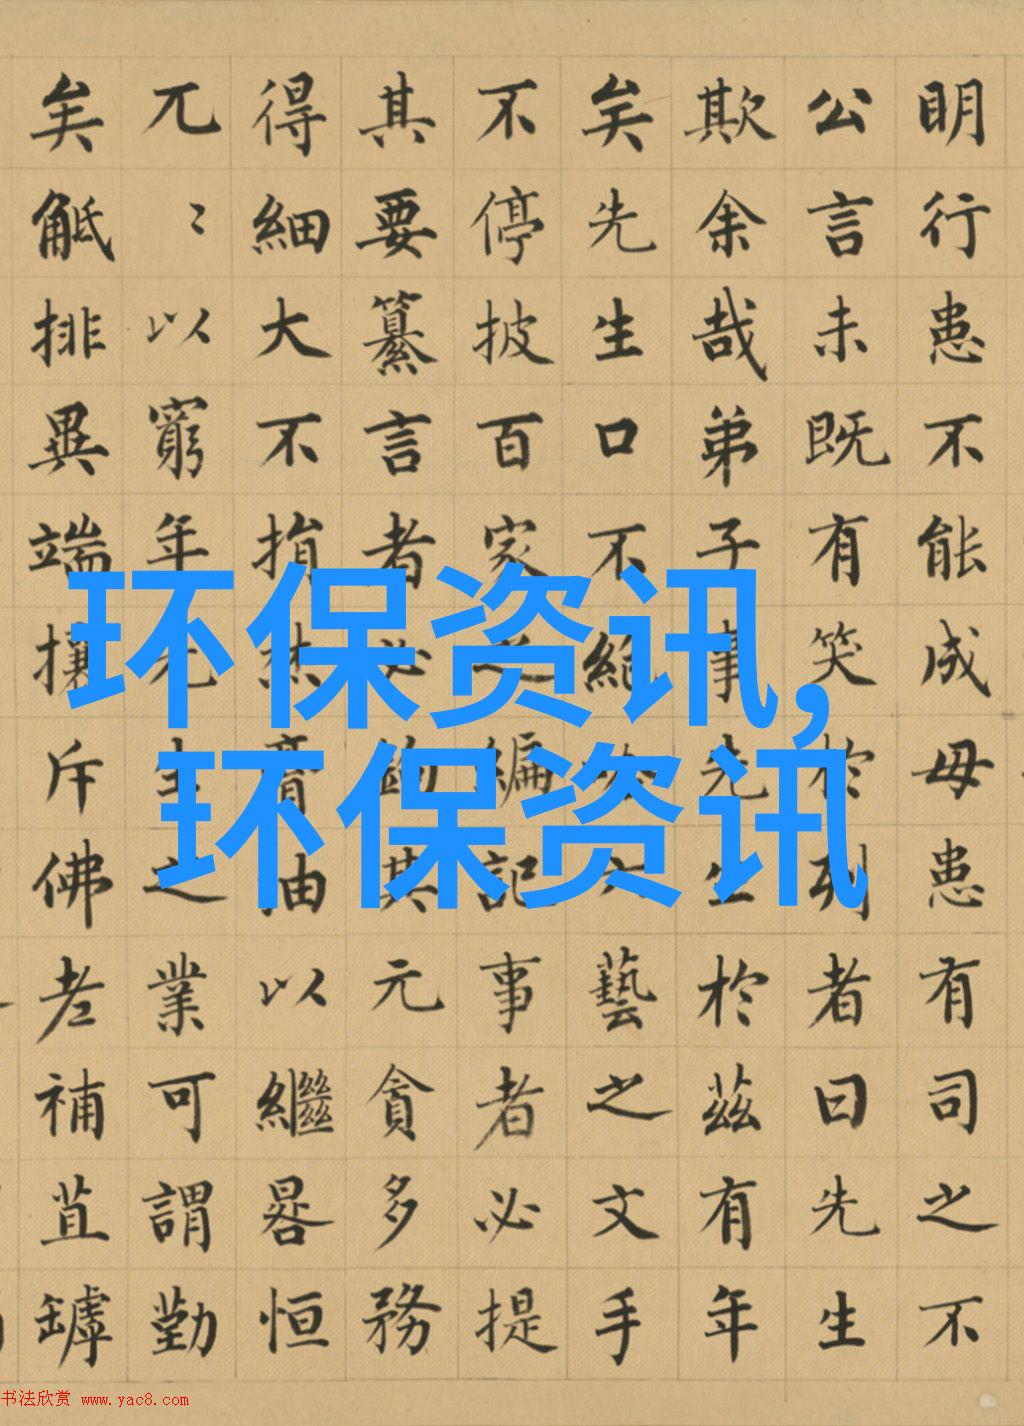 明行患不能成毋患有司之不
公言未既有笑於列者曰先生
欺余哉弟子事先生於茲有年
矣先生口不絕六藝之文手
不停披百家之編記事者必提
其要纂言者必鈎其元貪多務
得細大不捐焚膏油以繼晷恒
兀〻以窮年先生之業可謂勤
矣觝排異端攘斥佛老補苴罅
环保资讯,
环保资讯
书法欣赏 www.yac8.com